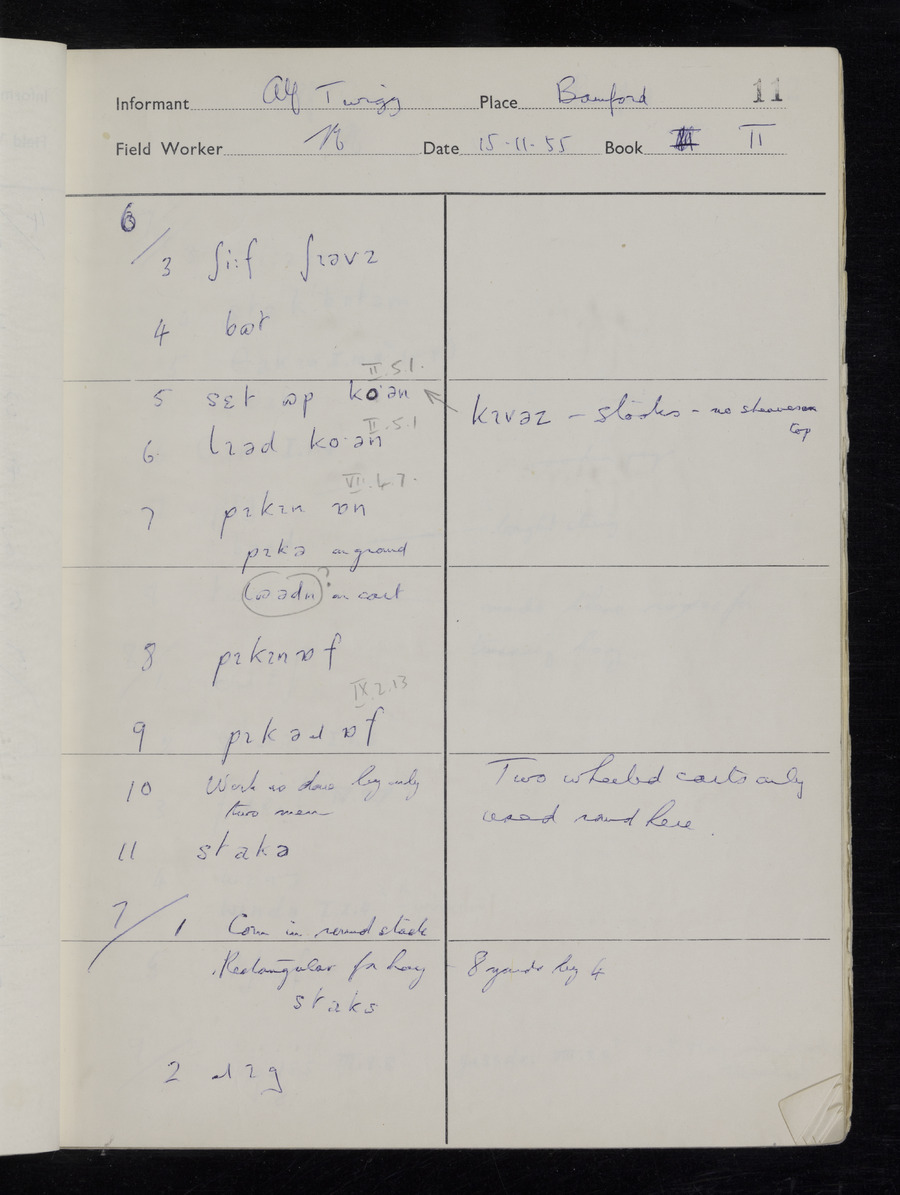 Informant Alf Twigg Place Bamford 11
Field Worker Date 15-11-55 Book II
6/
3 ʃi:f ʃɪəvz
4
II.5.1.
5 sɛt ɒp ko·ən
kɪvəz – stooks – no sheaves on top
II.5.1
6 lɪəd ko·ən
VII.4.7.
7 pɪkɪn ɒn
pɪkə on ground
? on cart
8 pɪkɪn ɒf
IX.2.13
9 ɒf
10 Work is done by only
two men
Two wheeled carts only
used round here.
11 stakə
7/1 Corn in round stack
Rectangular for hay
8 yards by 4
staks
2 ɹɪg